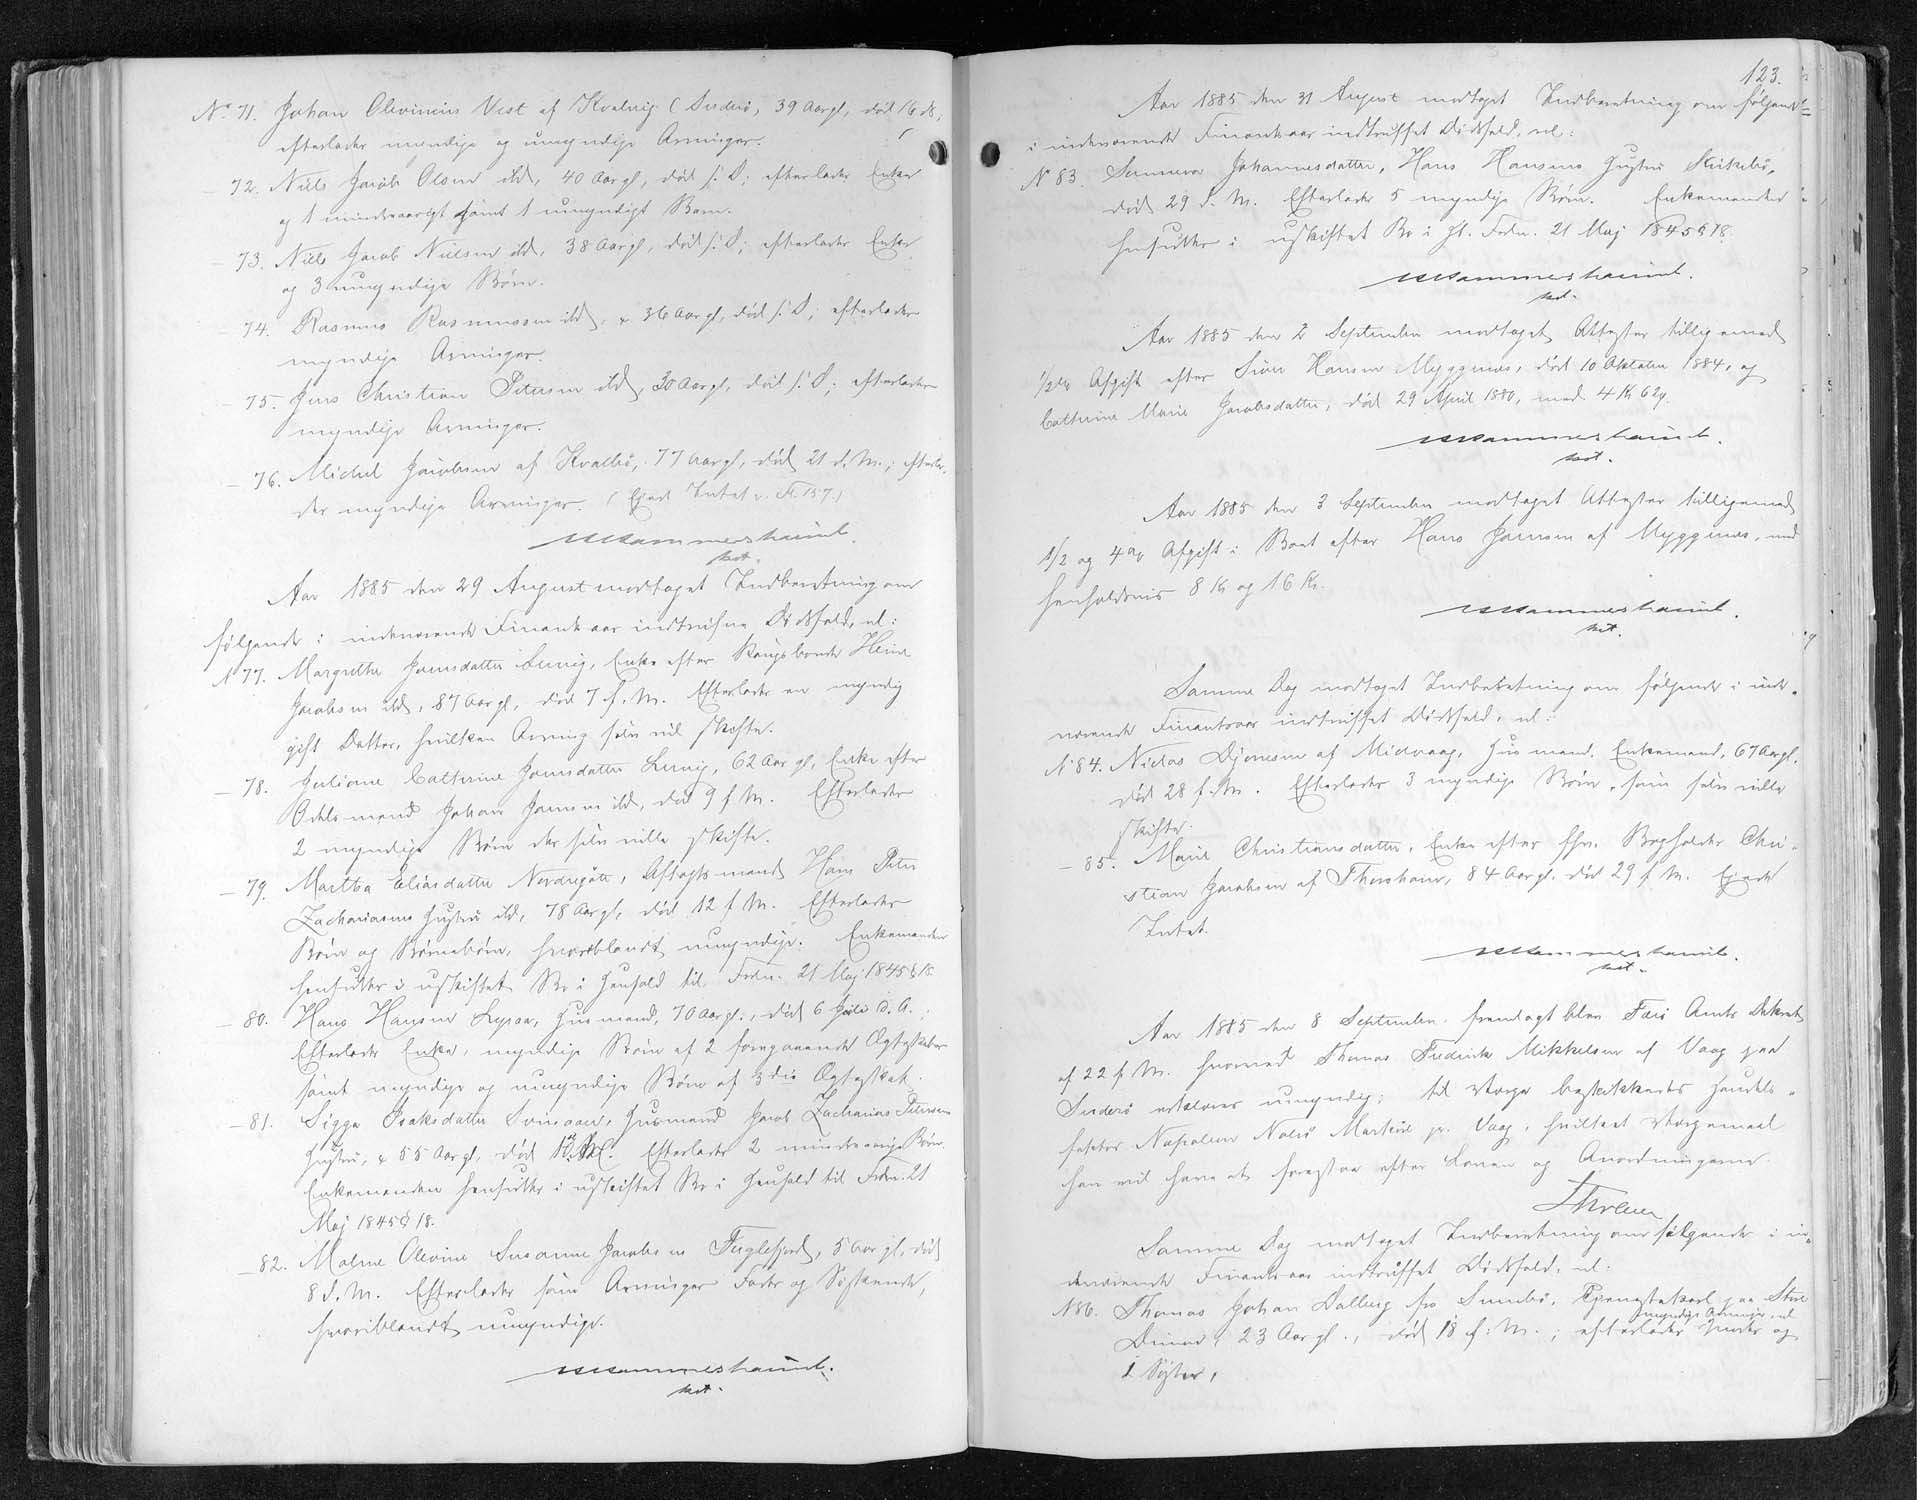 No 71. Johan Olevinius Vest af Hvalvig (Suderö, 39 Aar gl, död 16 ds,
efterlader myndige og umyndige Arvinger.
— 72. Niels Jacob Olsen ibd, 40 Aar gl, död s: D; efterlader Enke
og 1 mindreaarigt samt 1 umyndigt Barn.
— 73. Niels Jacob Nielsen ibd, 38 Aar gl, död s: D; efterlader Enke
og 3 umyndige Börn.
— 74. Rasmus Rasmussen ibd, 36 Aar gl, död s: D; efterlader
myndige Arvinger.
— 75. Jens Christian Petersen ibd, 30 Aar gl, död s: D; efterlader
myndige Arvinger.
— 76. Michel Jacobsen af Hvalbö, 77 Aar gl, död 21 d. M.; efterla-
der myndige Arvinger. (Ejede Intet v. Fl. 157.)
kst.
Aar 1885 den 29 August modtaget Indberetning om
følgende i indeværende Finantsaar indtrufne Dödsfald, nl:
N 77. Margrethe Joensdatter Lervig, Enke efter Kongsbonde Heine
Jacobsen ibd, 87 Aar gl, död 7 f. M. Efterlader en myndig
gift Datter, hvilken Arving selv vil skifte.
— 78. Juliane Cathrine Joensdatter Lervig, 62 Aar gl, Enke efter
Odelsmand Johan Joensen ibd, död 9 f. M. Efterlader
2 myndige Börn der selv ville skifte.
— 79. Martha Eliasdatter Nordregöte, Aftægtsmand Hans Peter
Zachariasens Hustru ibd, 78 Aar gl, död 12 f. M. Efterlader
Börn og Börnebörn, hvoriblandt umyndige. Enkemanden
hensidder i uskiftet Bo i Henhold til Frdn. 21 Maj 1845 § 18.
— 80. Hans Hansen Lepan, Husmand, 70 Aar gl., död 6 Juli d. A.;
Efterlader Enke, myndige Börn af 2 foregaaende Ægteskaber
samt myndige og umyndige Börn af 3die Ægteskab.
— 81. Sigga Isaksdatter Svinaaer, Husmand Jacob Zacharias Petersens
Hustru, 55 Aar gl, död Efterlader 2 mindreaarige Börn.
Enkemanden hensidder i uskiftet Bo i Henhold til Frdn. 21
Maj 1845 § 18.
— 82. Malene Olevine Susanne Jacobsen Fuglefjord, 5 Aar gl, död
8 d. M. Efterlader som Arvinger Fader og Söskende,
hvoriblandt umyndige.
kst.
123.
Aar 1885 den 31 August modtaget Indberetning om følgende
i indeværende Finantsaar indtruffet Dödsfald, nl:
N 83. Sunneva Johannesdatter, Hans Hansens Hustru
död 29 d. M. Efterlader 5 myndige Börn. Enkemanden
hensidder i uskiftet Bo i Hh. Frdn. 21 Maj 1845 § 18.
kst.
Aar 1885 den 2 September modtaget Attester tilligemed
1/2 % Afgift efter Sivert Hansen Myggenæs, död 10 Oktober 1884, og
Cathrine Marie Jacobsdatter, död 29 April 1880, med 4 Kr 62 ø.
kst.
Aar 1885 den 3 September modtaget Attester tilligemed
1/2 og 4 % Afgift i Boet efter Hans Joensen af Myggenæs, med
henholdsvis 8 Kr og 16 Kr.
kst.
Samme Dag modtaget Indberetning om følgende i inde-
værende Finantsaar indtruffet Dödsfald, nl:
N 84. Niclas Djonesen af Midvaag, Husmand, Enkemand, 67 Aar gl,
död 28 f. M. Efterlader 3 myndige Börn, som selv ville
skifte.
— 85. Marie Christiansdatter, Enke efter fhv. Bogholder Chri-
stian Jacobsen af Thorshavn, 84 Aar gl, död 29 f. M. Ejede
Intet.
kst.
Aar 1885 den 8 September fremlagt blev Færö Amts Dekret
af 22 f. M. hvorved Thomas Frederik Mikkelsen af Vaag paa
Suderö erklæres umyndig; til Værge beskikkedes Handels-
fakter Napoleon Nolsö Vaag, hvilket Værgemaal
han vil have at forestaa efter Loven og Anordningerne.
Samme Dag modtaget Indberetning om følgende i in-
deværende Finantsaar indtruffet Dödsfald, nl:
N 86. Thomas Johan Dalberg fra Sumbö, Tjenestekarl paa Store
myndige Arvinger, nl
Dimon, 23 Aar gl., död 18 f. M.; efterlader Moder og
1 Söster,